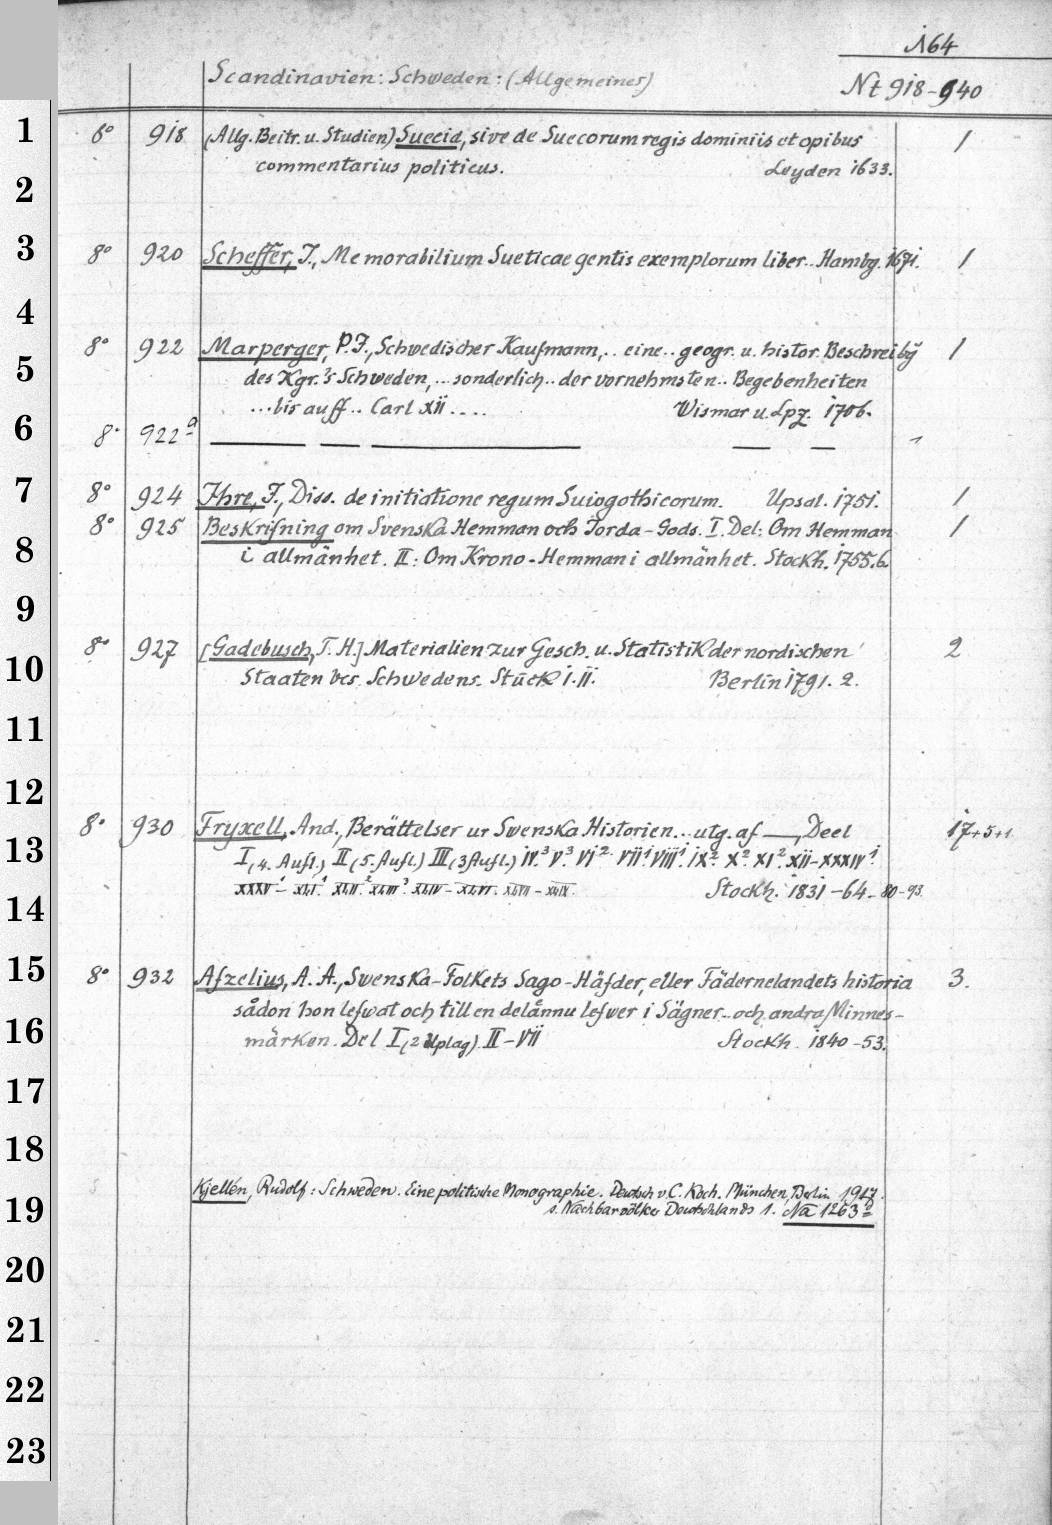 164
Scandinavien: Schweden: (Allgemeines)
Nt 918-940
1
8° 918 (Allg. Beitr. u. Studien) Suecia, sive de Suecorum regis dominiis et opibus 1
commentarius politicus. Leyden 1633.
2
3
8° 920 Scheffer, J., Memorabilium Sueticae gentis exemplorum liber.. Hambg. 1671. 1
4
8° 922 Marperger, P.J., Schwedischer Kaufmann,.. eine.. geogr. u. histor. Beschreibg 1
5
des Kgr.'s Schweden, ... sonderlich.. der vornehmsten.. Begebenheiten
...bis auff.. Carl XII.... Wismar u. Lpz. 1706.
6
8° 922a
7
8° 924 Ihre, J., Diss. de initiatione regum Suiogothicorum. Upsal. 1751. 1
8° 925 Beskrifning om Svenska Hemman och Jorda-Gods. I. Del: Om Hemman 1
8
i allmänhet. II: Om Krono-Hemman i allmänhet. Stockh. 1755.6.
9
8° 927 [Gadebusch, T. H.] Materialien zur Gesch. u. Statistik der nordischen 2
10
Staaten bes. Schwedens. Stück I.II. Berlin 1791. 2.
11
12
8° 930 Fryxell, And., Berättelser ur Swenska Historien... utg. af —, Deel 17+5+1
13
I (4. Aufl.) II (5. Aufl.) III (3 Aufl.) IV.3 V.3 VI2. VII1. VIII.1 IX2. X2. XI2. XII-XXXIV1
XXXV1- XLI.1 XLII.2 XLIII3 XLIV-XLVI. XLVII-XLIX. Stockh. 1831-64.-80-93.
14
15
8° 932 Afzelius, A. A., Swenska-Folkets Sago-Häfder, eller Fädernelandets historia 3.
sådon hon lefwat och till en del ännu lefwer i Sägner.. och andra Minnes-
16
märken. Del I (2 Uplag). II-VII Stockh. 1840-53.
17
18
Kjellén, Rudolf: Schweden. Eine politische Monographie. Deutsch v. C. Koch. München, Berlin 1917.
19
s. Nachbarvölker Deutschlands 1. Na 1263a
20
21
22
23